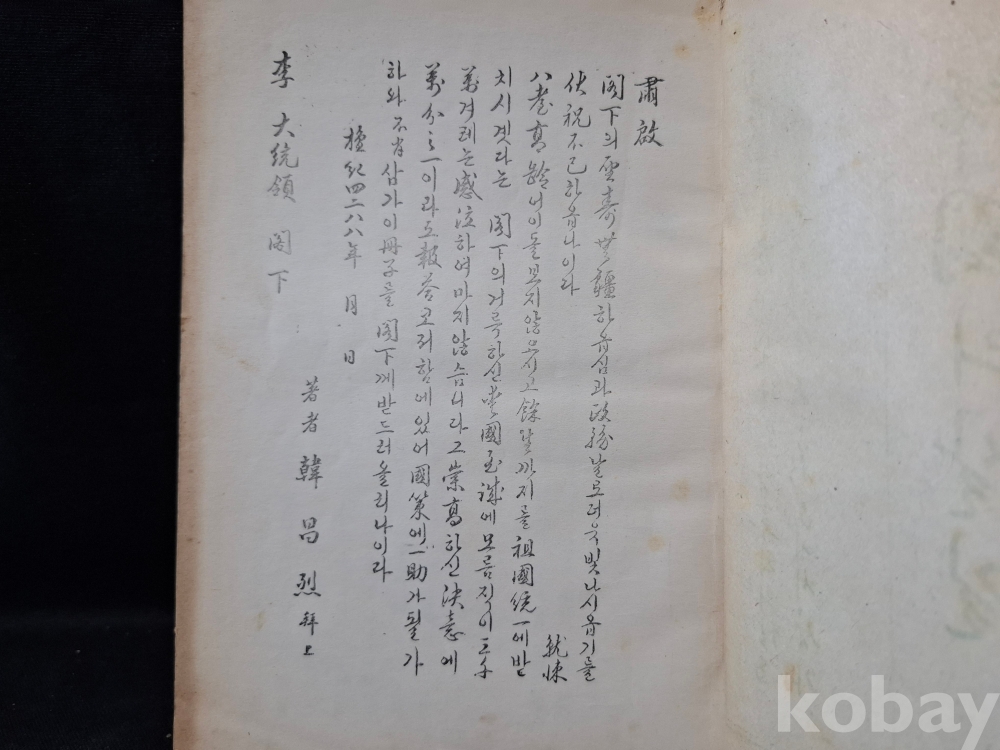 肅啟
閣下의 聖壽無疆하옵심과 政務날로 더욱 빛나시옵기를
伏祝不已하옵나이다
就悚
八耋高齡 어이돌보지않으시고 餘生까지를 祖國統一에 받
치시겟다는 閣下의 거룩하신 愛國至誠에 모름직이 三千
萬겨레는 感泣하여 마지않습니다 그 崇高하신 決意에
萬分之一이라도 報答코저 함에 있어 國策에 一助가 될가
하와 不肖 삼가 이 冊子를 閣下께 받드러 올리나이다
檀紀四二八八年 月 日
著者 韓昌烈 拜上
李大統領 閣下
kobay